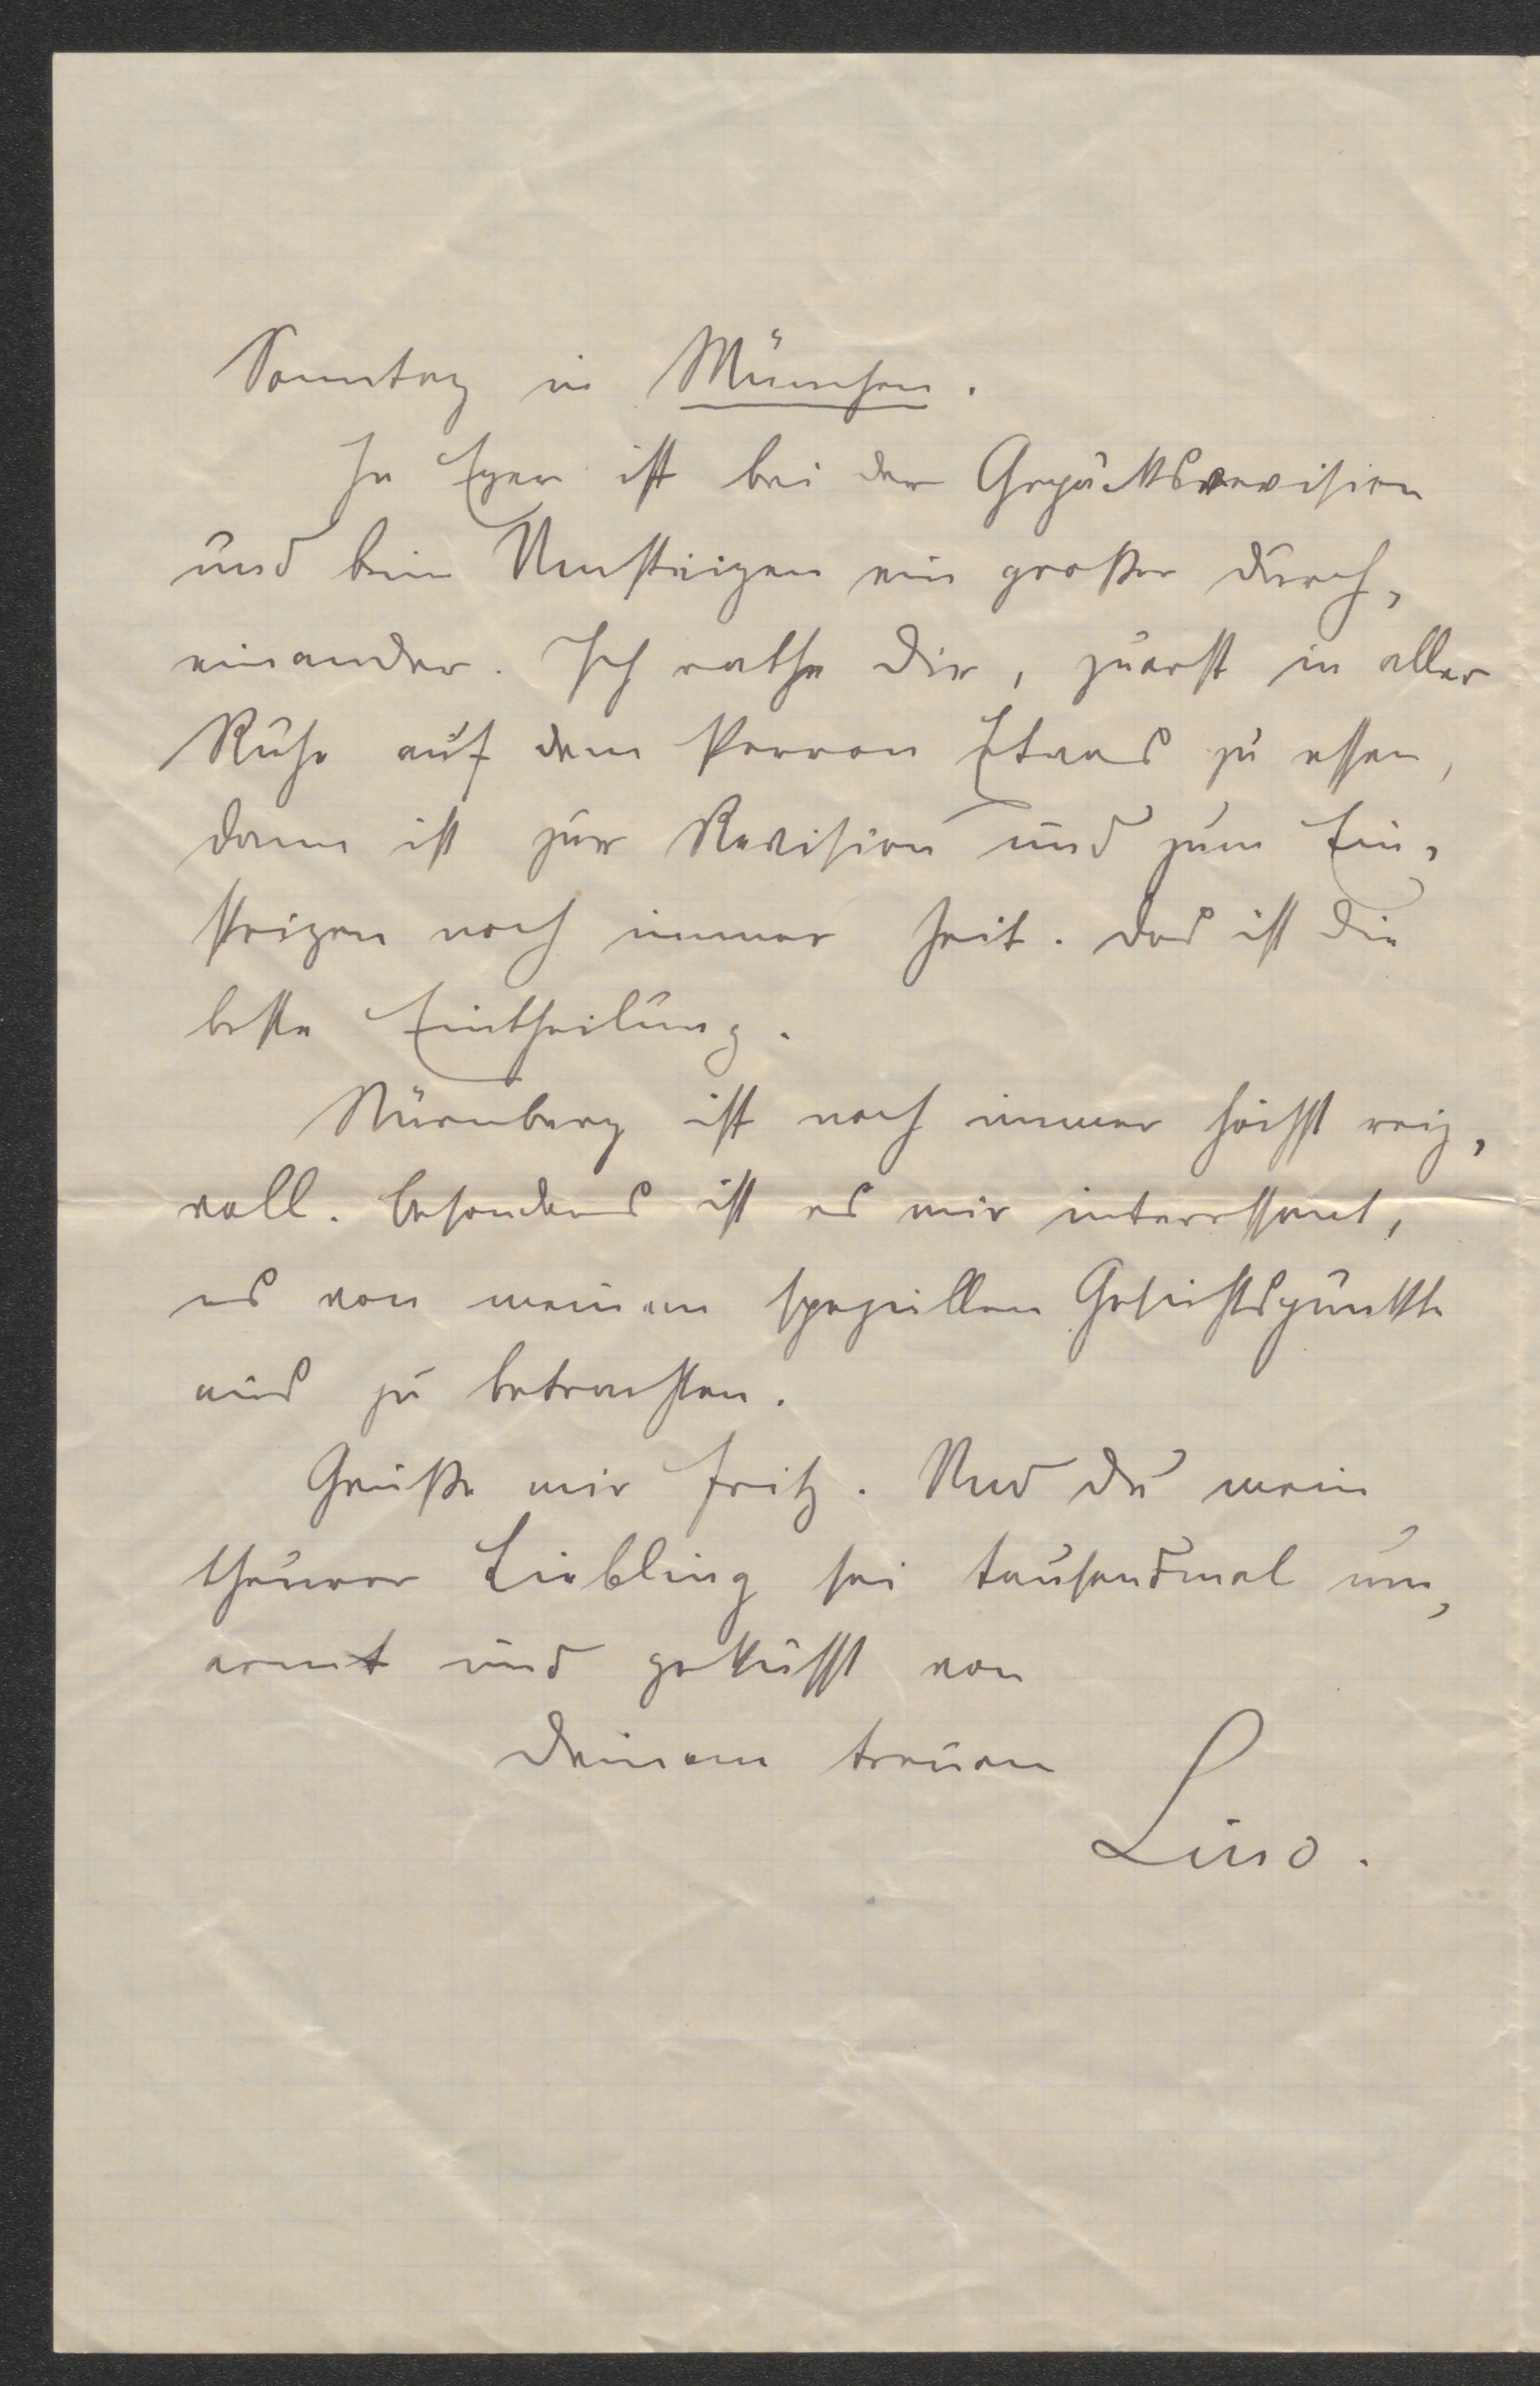 Sonntag in München.
In Eger ist bei der Gepäcksrevision
und beim Umsteigen ein großer Durch-
einander. Ich rathe Dir, zuerst in aller
Ruhe auf dem Perron Etwas zu essen,
dann ist zur Revision und zum Ein-
steigen noch immer Zeit. Das ist die
beste Eintheilung.
Nürnberg ist noch immer höchst reiz-
voll. Besonders ist es mir interessant,
es von meinem speziellen Gesichtspunkte
aus zu betrachten.
Grüße mir Fritz. Und Du mein
theurer Liebling sei tausendmal um-
armt und geküsst von
Deinem treuen